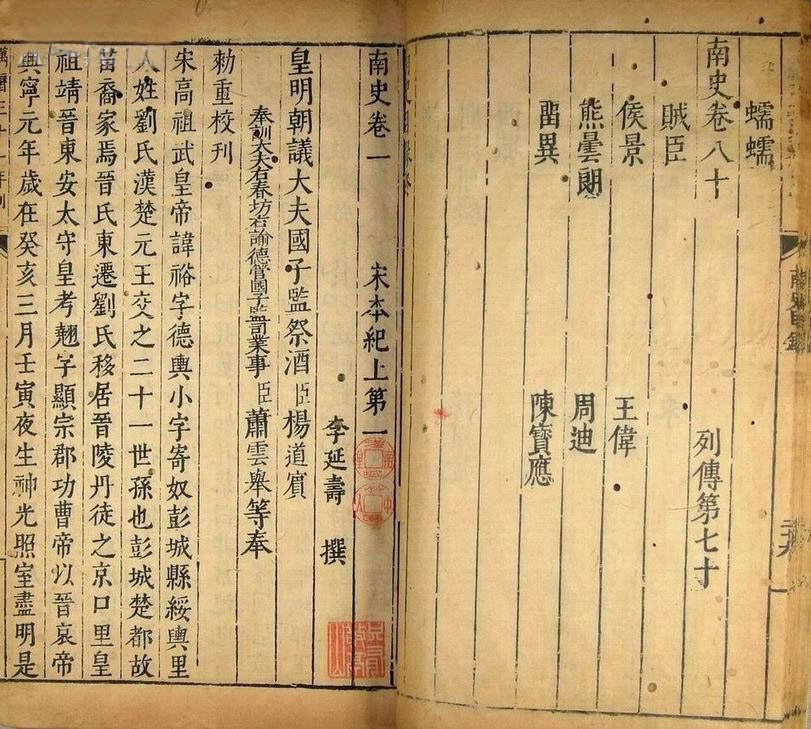 蠕蠕
南史卷八十　列傳第七十
賊臣
侯景　王偉
熊曇朗　周迪
留異　陳寶應
南史目錄
南史卷一　宋本紀上第一
李延壽　撰
皇明朝議大夫國子監祭酒臣楊道賓
奉訓大夫右春坊右諭德管國子監司業事臣蕭雲舉等奉
勑重校刊
宋高祖武皇帝諱裕字德輿小字寄奴彭城縣綏輿里
人姓劉氏漢楚元王交之二十一世孫也彭城楚都故
苗裔家焉晉氏東遷劉氏移居晉陵丹徒之京口里皇
祖靖晉東安太守皇考翹字顯宗郡功曹帝以晉哀帝
興寧元年歲在癸亥三月壬寅夜生神光照室盡明是
萬曆三十一年刊